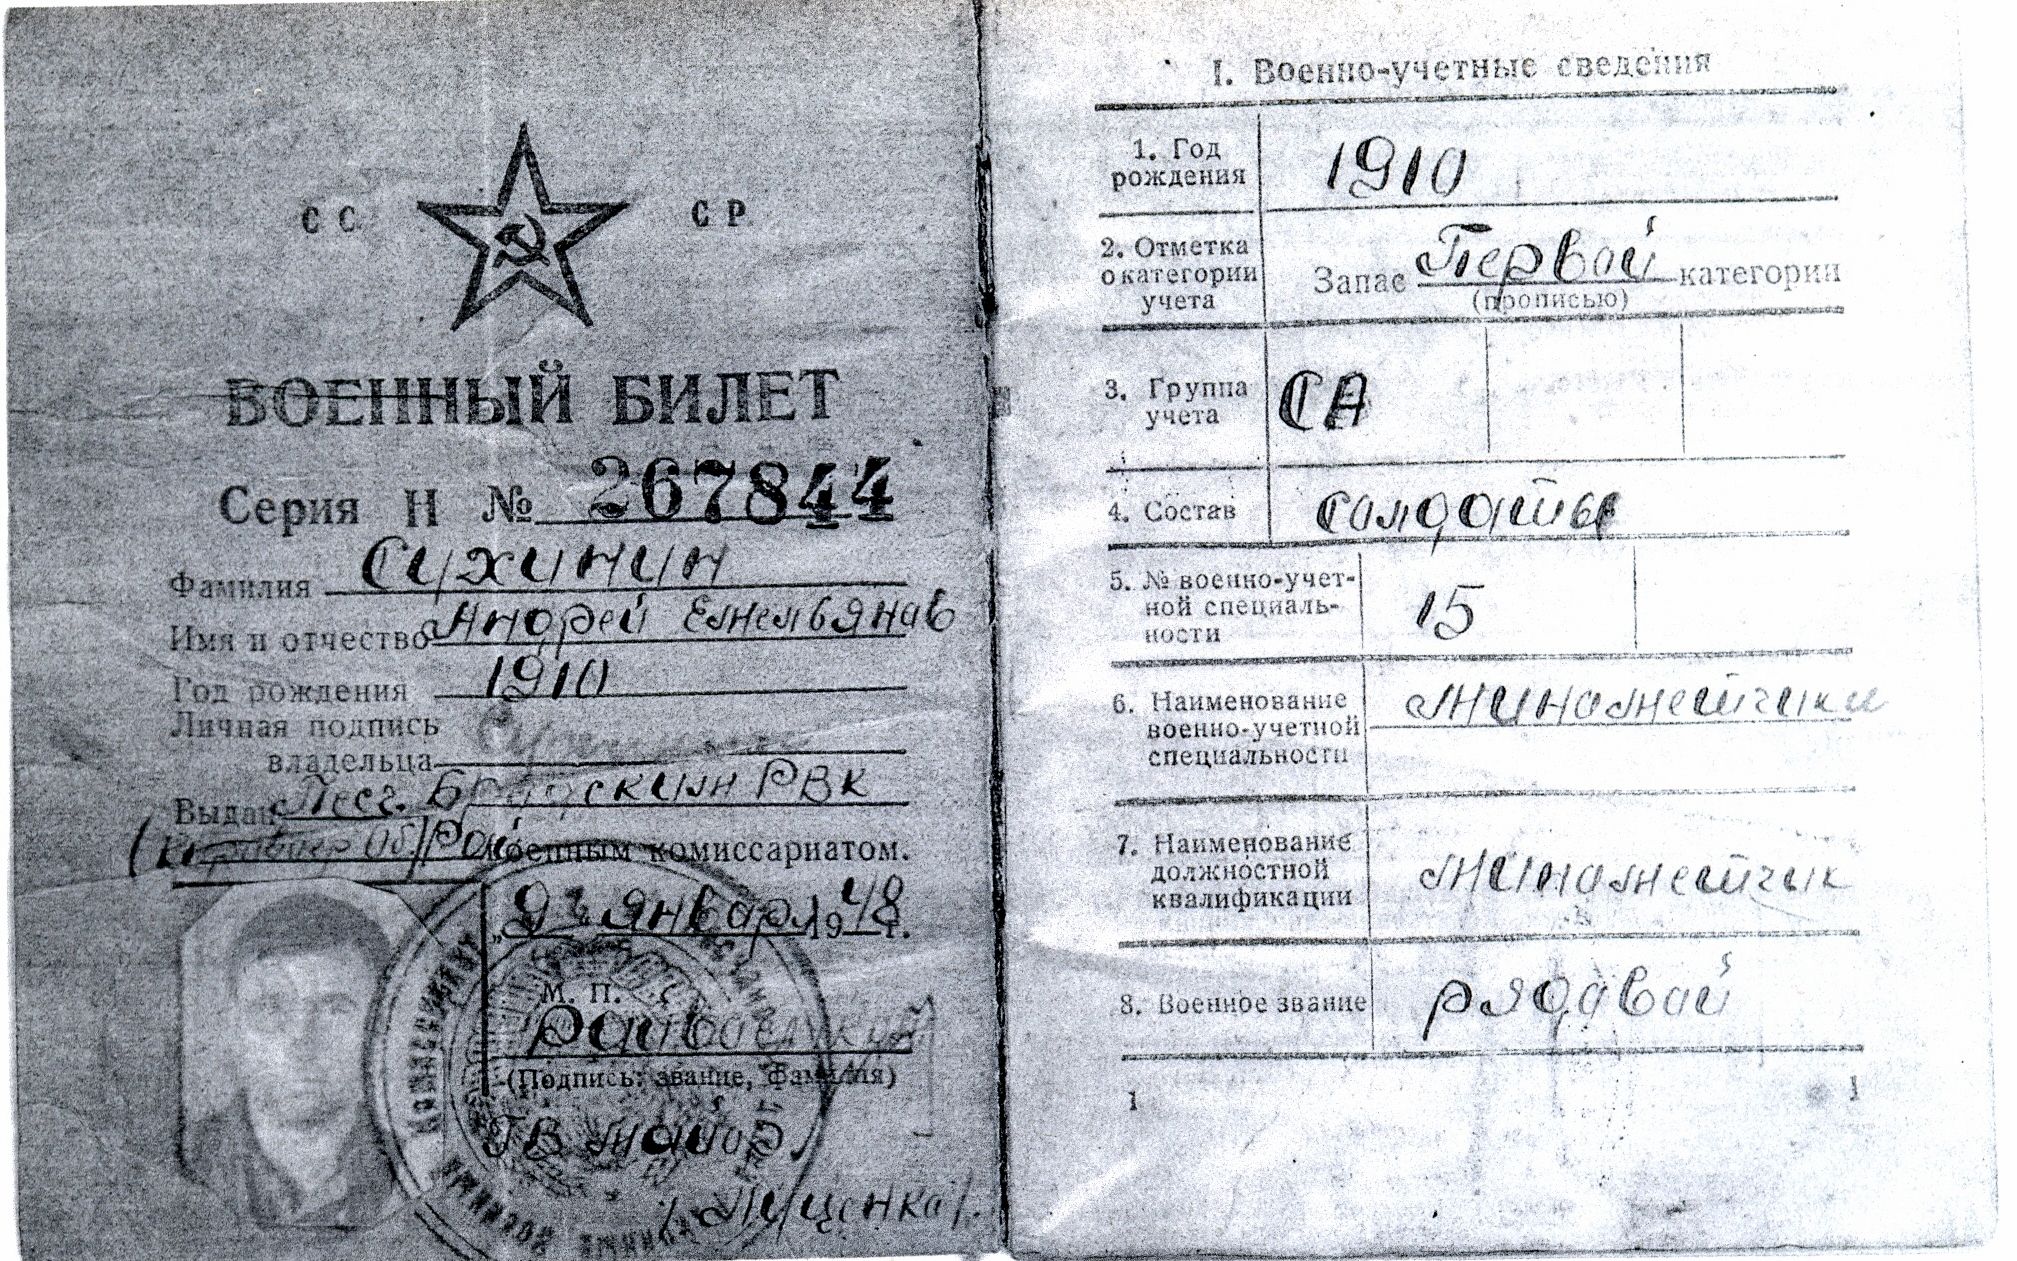 СС СР
ВОЕННЫЙ БИЛЕТ
Серия Н № 267844
Фамилия Сухинин
Имя и отчество Андрей Емельянов
Год рождения 1910
Личная подпись
владельца
Выдан РВК
Об.) Рай военным комиссариатом.
"9" января 1948 г.
М. П.
(Подпись: звание, фамилия)
Гв майор
/Мищенка/.
I. Военно-учетные сведения
1. Год
рождения
1910
2. Отметка
о категории
учета
Запас Первой категории
(прописью)
3. Группа
учета
СА
4. Состав
салдаты
5. № военно-учет-
ной специаль-
ности
15
6. Наименование
военно-учетной
специальности
минаметчики
7. Наименование
должностной
квалификации
минаметчик
8. Военное звание
рядавой
1
1